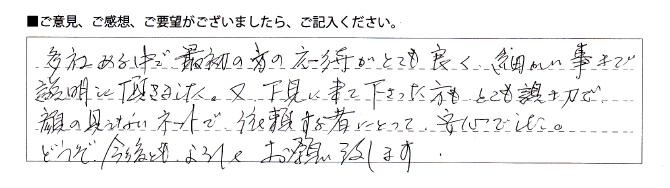 ■ご意見、ご感想、ご要望がございましたら、ご記入ください。
多社ある中で最初の方の応待がとても良く、細かい事まで
説明して頂きました。又、下見に来て下さった方もとても親切で、
顔の見えないネットで依頼する者にとって、安心でした。
どうぞ、今後ともよろしくお願い致します。